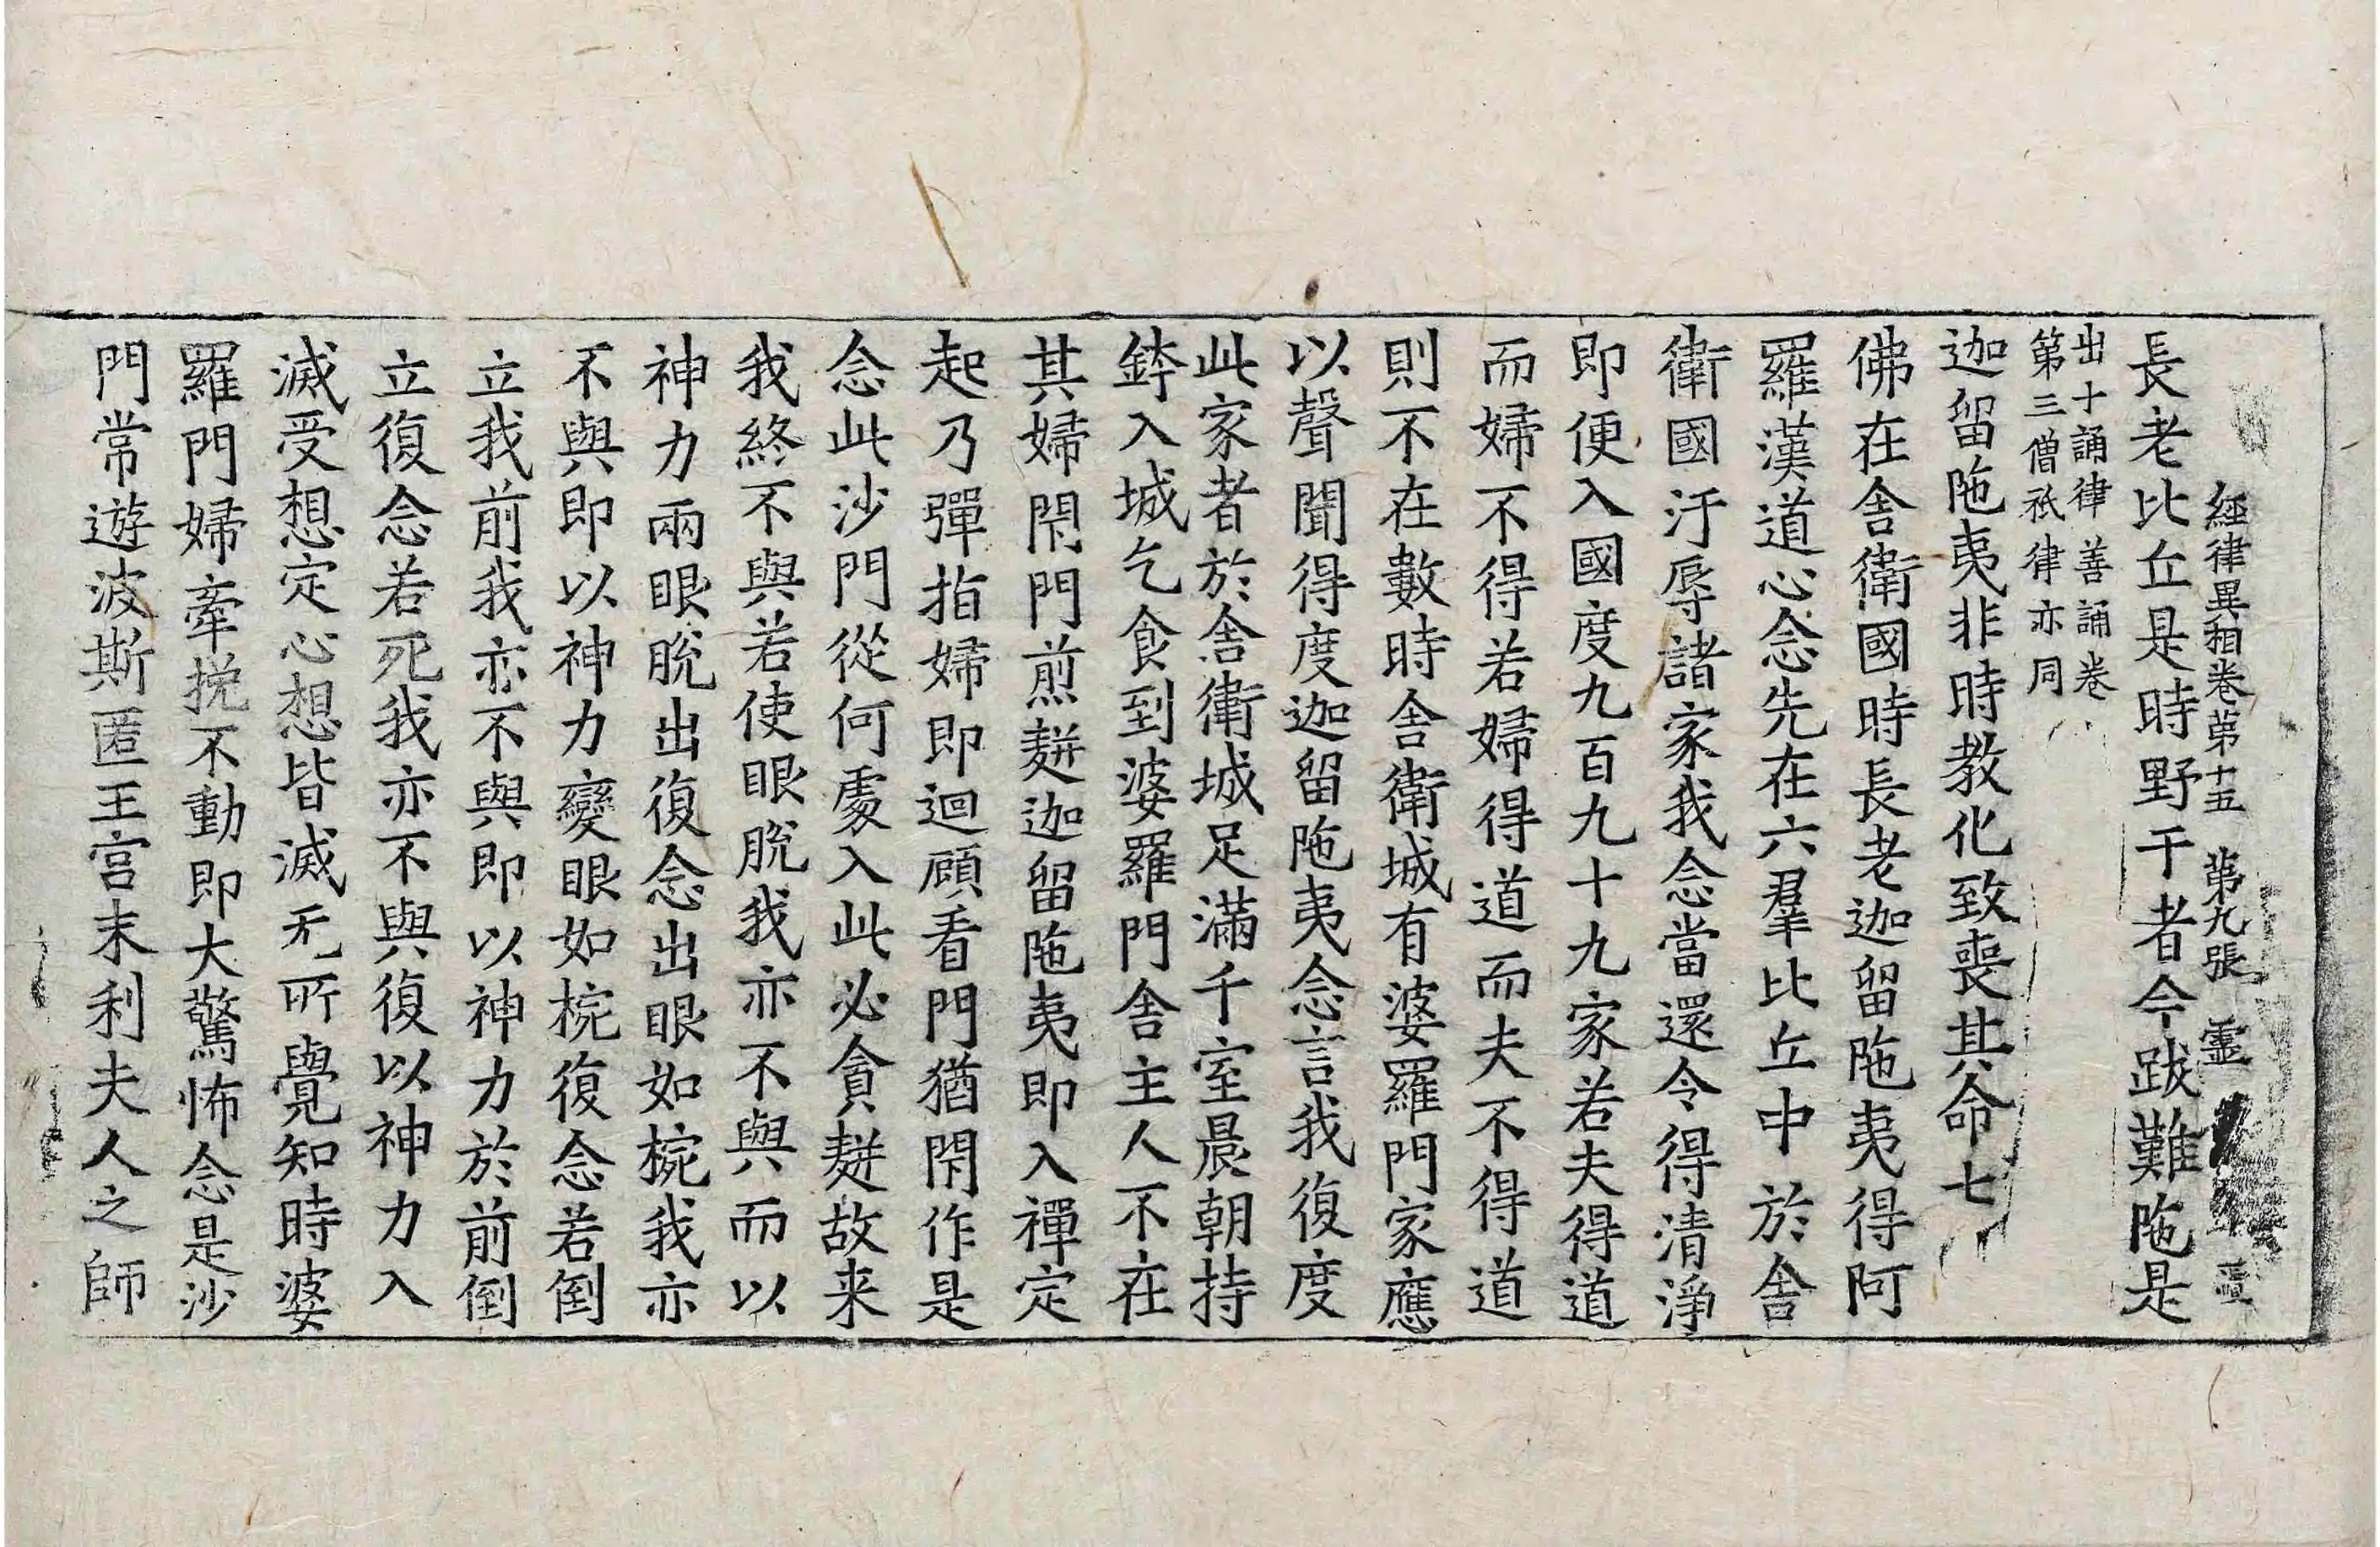 經律異相卷第十五　第九張　靈
長老比丘是時野干者今跋難陁是
出十誦律善誦卷
第三僧祇律亦同
迦留陁夷非時教化致喪其命七
佛在舍衛國時長老迦留陁夷得阿
羅漢道心念先在六羣比丘中於舍
衛國汙辱諸家我念當還令得清淨
即便入國度九百九十九家若夫得道
而婦不得若婦得道而夫不得道
則不在數時舍衛城有婆羅門家應
以聲聞得度迦留陁夷念言我復度
此家者於舍衛城足滿千室晨朝持
鉢入城乞食到婆羅門舍主人不在
其婦閇門煎麨迦留陁夷即入禪定
起乃彈指婦即迴顧看門猶閇作是
念此沙門從何處入此必貪麨故来
我終不與若使眼脫我亦不與而以
神力兩眼脫出復念出眼如椀我亦
不與即以神力變眼如椀復念若倒
立我前我亦不與即以神力於前倒
立復念若死我亦不與復以神力入
滅受想定心想皆滅无所覺知時婆
羅門婦牽挽不動即大驚怖念是沙
門常遊波斯匿王宮末利夫人之師